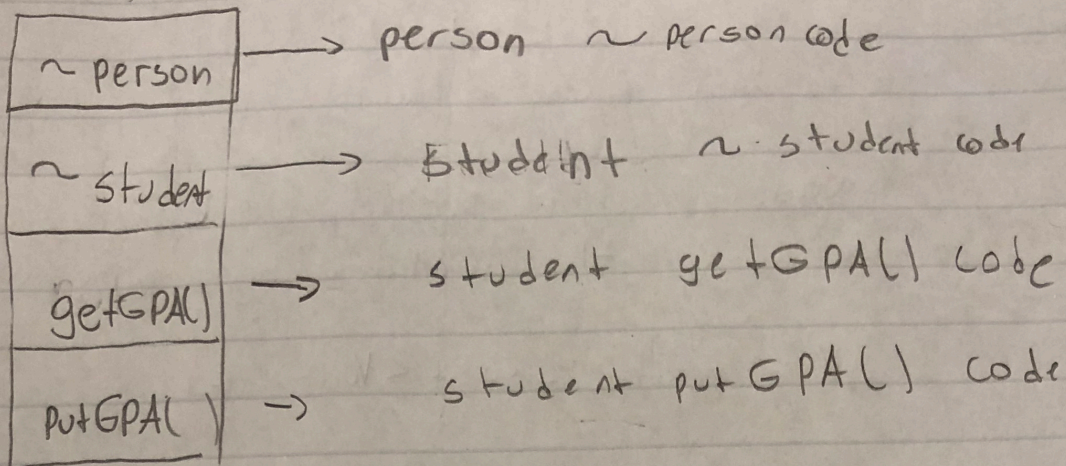 ~ person → person ~ person code
~ student → studdint ~ student code
getGPA() → student getGPA() code
putGPA( ) → student putGPA() code